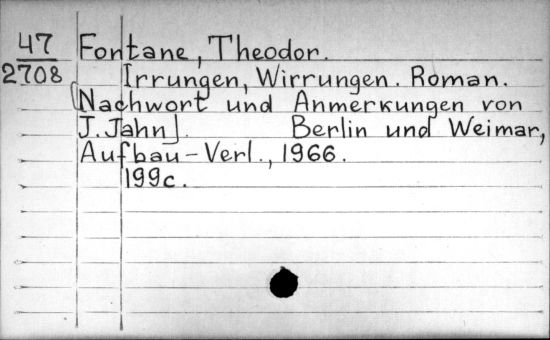 47 Fontane, Theodor.
2708 Irrungen, Wirrungen. Roman.
[Nachwort und Anmerkungen von
J. Jahn]. Berlin und Weimar,
Aufbau-Verl., 1966.
199c.